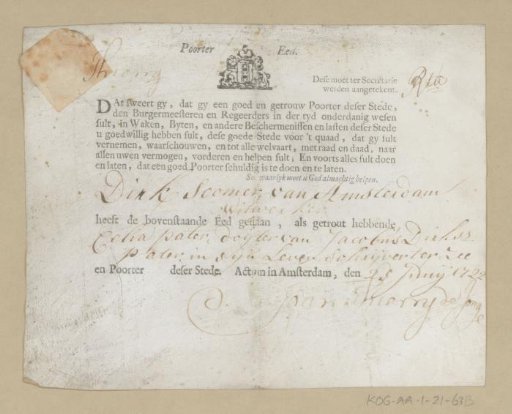 Poorter Eed.
Rta
Dese moet ter Secretarie
werden aangetekent.
DAt sweert gy, dat gy een goed en getrouw Poorter deser Stede,
den Burgermeesteren en Regeerders in der tyd onderdanig wesen
sult, in Waken, Byten, en andere Beschermenissen en lasten deser Stede
u goedwillig hebben sult, dese goede Stede voor 't quaad, dat gy sult
vernemen, waarschouwen, en tot alle welvaart, met raad en daad, naar
allen uwen vermogen, vorderen en helpen sult, En voorts alles sult doen
en laten, dat een goed Poorter schuldig is te doen en te laten.
So waarlyk moet u God almachtig helpen.
Dirk van Amsterdam
heeft de bovenstaande Eed gedaan, als getrout hebbende
Pater dogter van Jacobus Dirksz
Pater in syn Leven
en Poorter deser Stede. Actum in Amsterdam, den
KOG-AA-1-21-63B